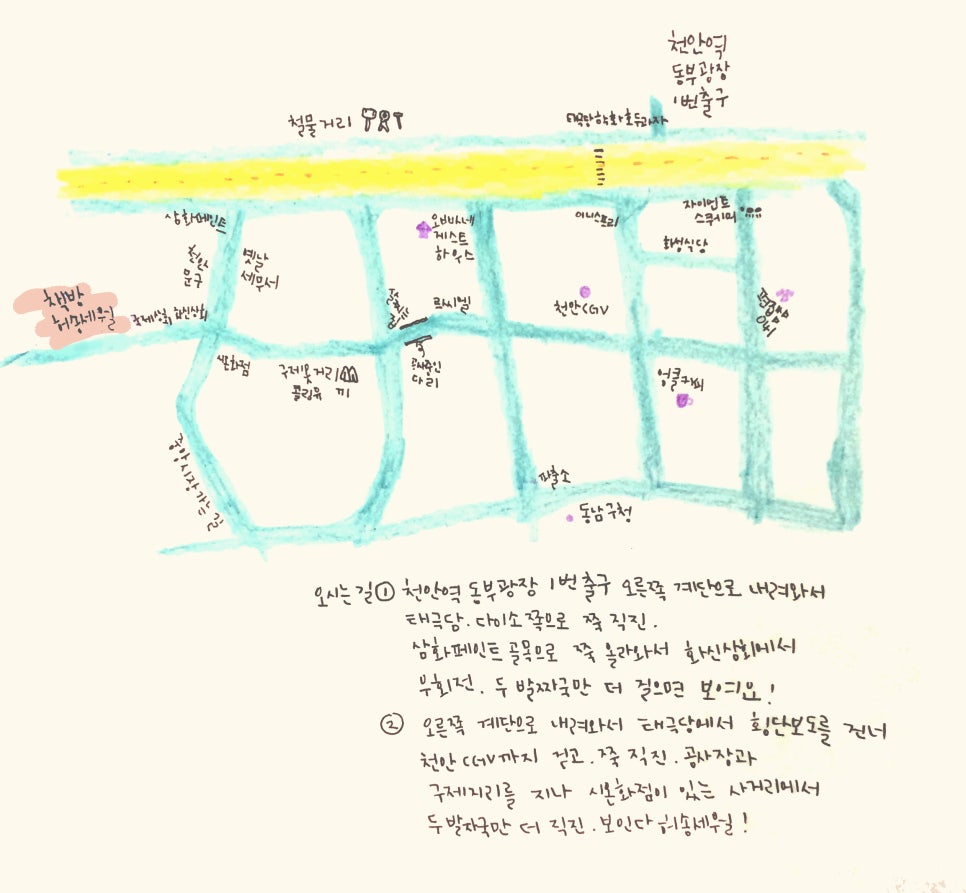 천안역
동부광장
1번출구
철물거리
태극당학화호두과자
삼화페인트
오빠네
게스트
하우스
이니스프리
자이언트
스쿼시머
화성식당
천일
문구
옛날
세무서
책방
허송세월
화신상회
르씨엘
천안CGV
시온화점
구제옷거리
콜립유 끼
공사중인
다리
얼클커피
중앙시장가는길
파출소
동남구청
오시는길① 천안역 동부광장 1번출구 오른쪽 계단으로 내려와서
태극당.다이소쪽으로 쭉 직진.
삼화페인트 골목으로 쭉 올라와서 화신상회에서
우회전. 두 발짜국만 더 걸으면 보여요!
② 오른쪽 계단으로 내려와서 태극당에서 횡단보도를 건너
천안 CGV까지 걷고. 쭉 직진. 공사장과
구제거리를 지나 시온화점이 있는 사거리에서
두발자국만 더 직진. 보인다 허송세월!